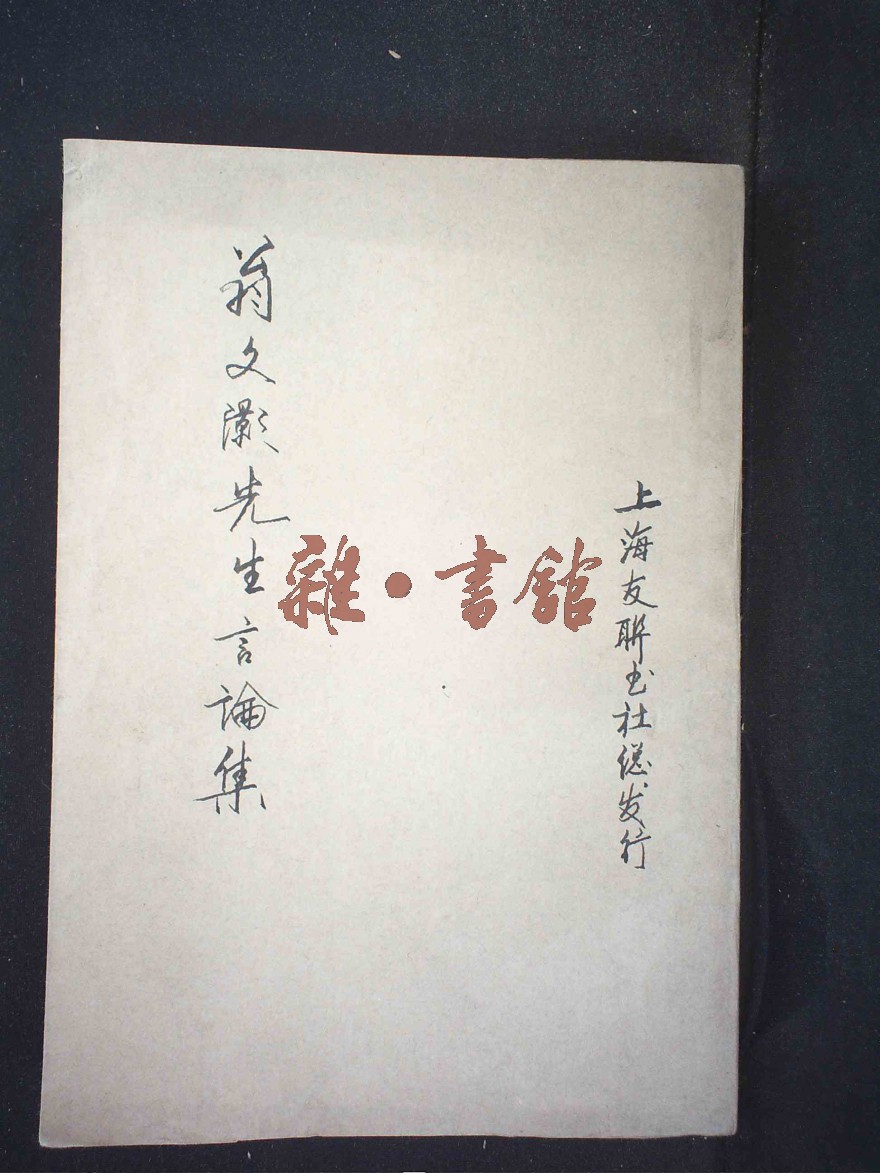 上海友聯书社總发行
翁文灝先生言論集
雜•書舘